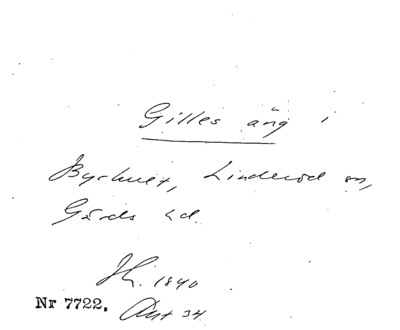 Gilles äng i
Byahuset, Linderöd sn,
Gärds hd.
1840
Nr 7722. Ant 34